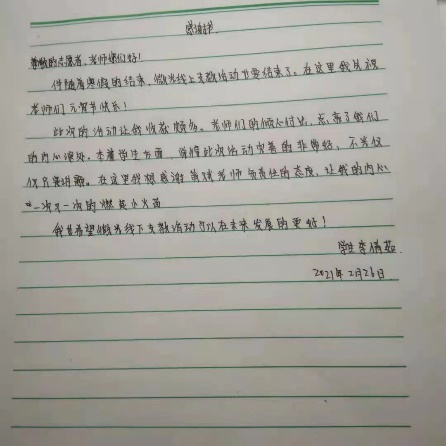 感谢书
尊敬的志愿者,老师您们好!
伴随着寒假的结束,微光线上支教活动也要结束了。在这里我庆祝
老师们元宵节快乐!
此次的活动让我收获颇多。老师们的倾心付出,点亮了我们
的内心深处。本着学生方面,觉得此次活动完善的非常好,不光仅
仅只是讲题。在这里我想感谢 老师负责任的态度,让我的内心
一次又一次的燃起小火苗
我其希望微光线下支教活动可以在未来发展的更好!
学生 李倩茹
2021年2月26日